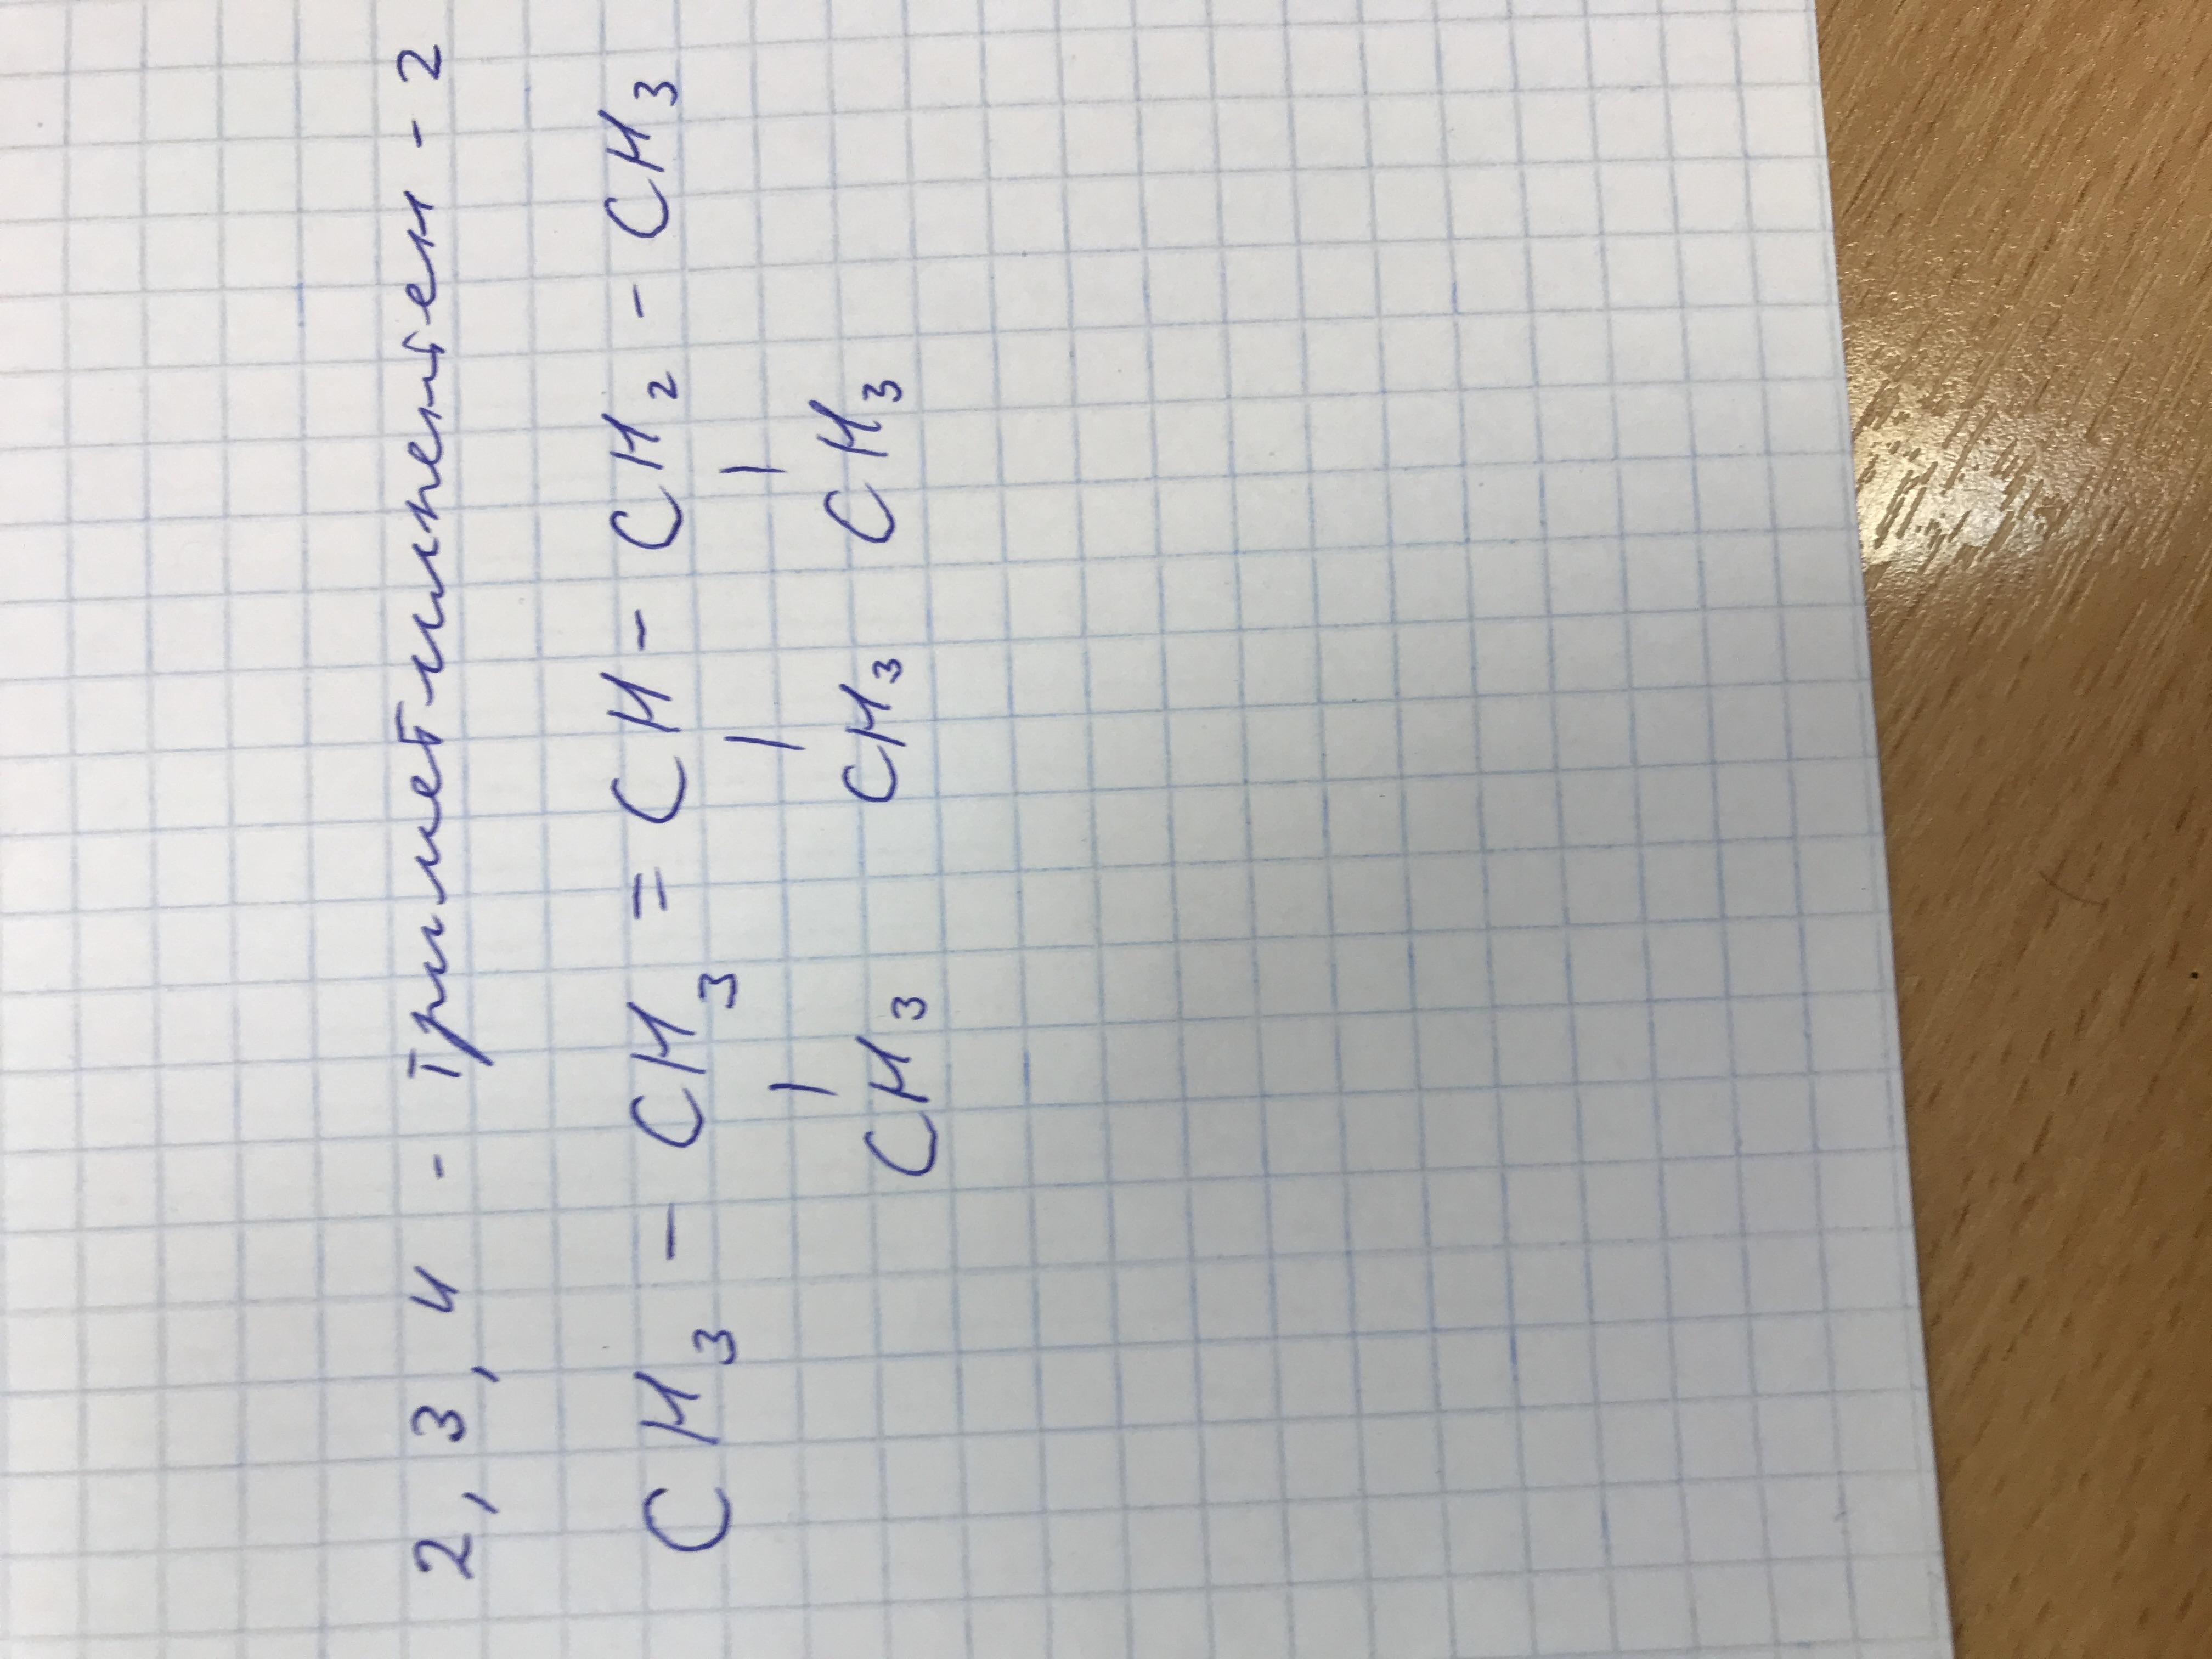 2, 3, 4 - триметилпентен - 2
CH3 - CH3 = CH - CH2 - CH3
| | |
CH3 CH3 CH3